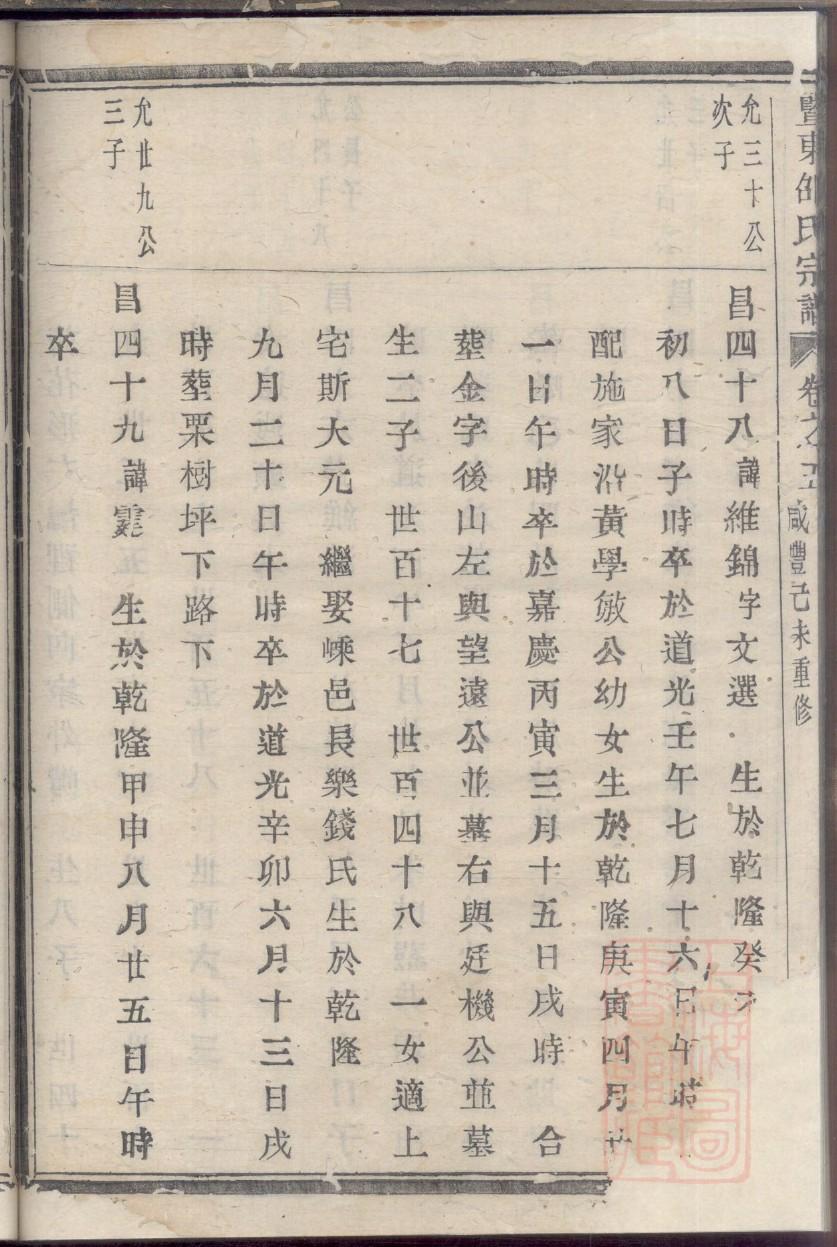 暨東邵氏宗譜 卷之五 咸豐己未重修
允三十公
次子
昌四十八諱維錦字文選 生於乾隆癸
初八日子時卒於道光壬午七月十六日午時
配施家沿黃學敏公幼女生於乾隆庚寅四月廿
一日午時卒於嘉慶丙寅三月十五日戌時 合
塟金字後山左與望遠公並墓右與廷機公並墓
生二子 世百十七 世百四十八 一女適上
宅斯大元 繼娶嵊邑長樂錢氏生於乾隆
九月二十日午時卒於道光辛卯六月十三日戌
時塟栗樹坪下路下
允廿九公
三子
昌四十九諱 生於乾隆甲申八月廿五日午時
卒